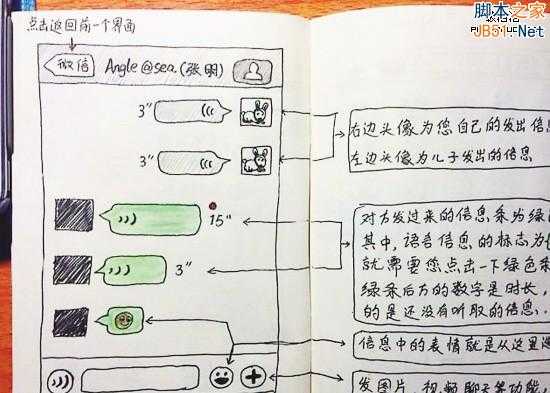 脚本之家
JB51.Net
点击返回前一个界面
微信
Angle@sea.(张明)
3"
3"
15"
3"
右边头像为您自己的发出信息
左边头像为儿子发出的信息
对方发过来的信息条为绿
其中,语音信息的标志为
就需要您点击一下绿色条
绿条后方的数字是时长,
的是还没有听取的信息.
信息中的表情就是从这里
发图片、视频聊天等功能,